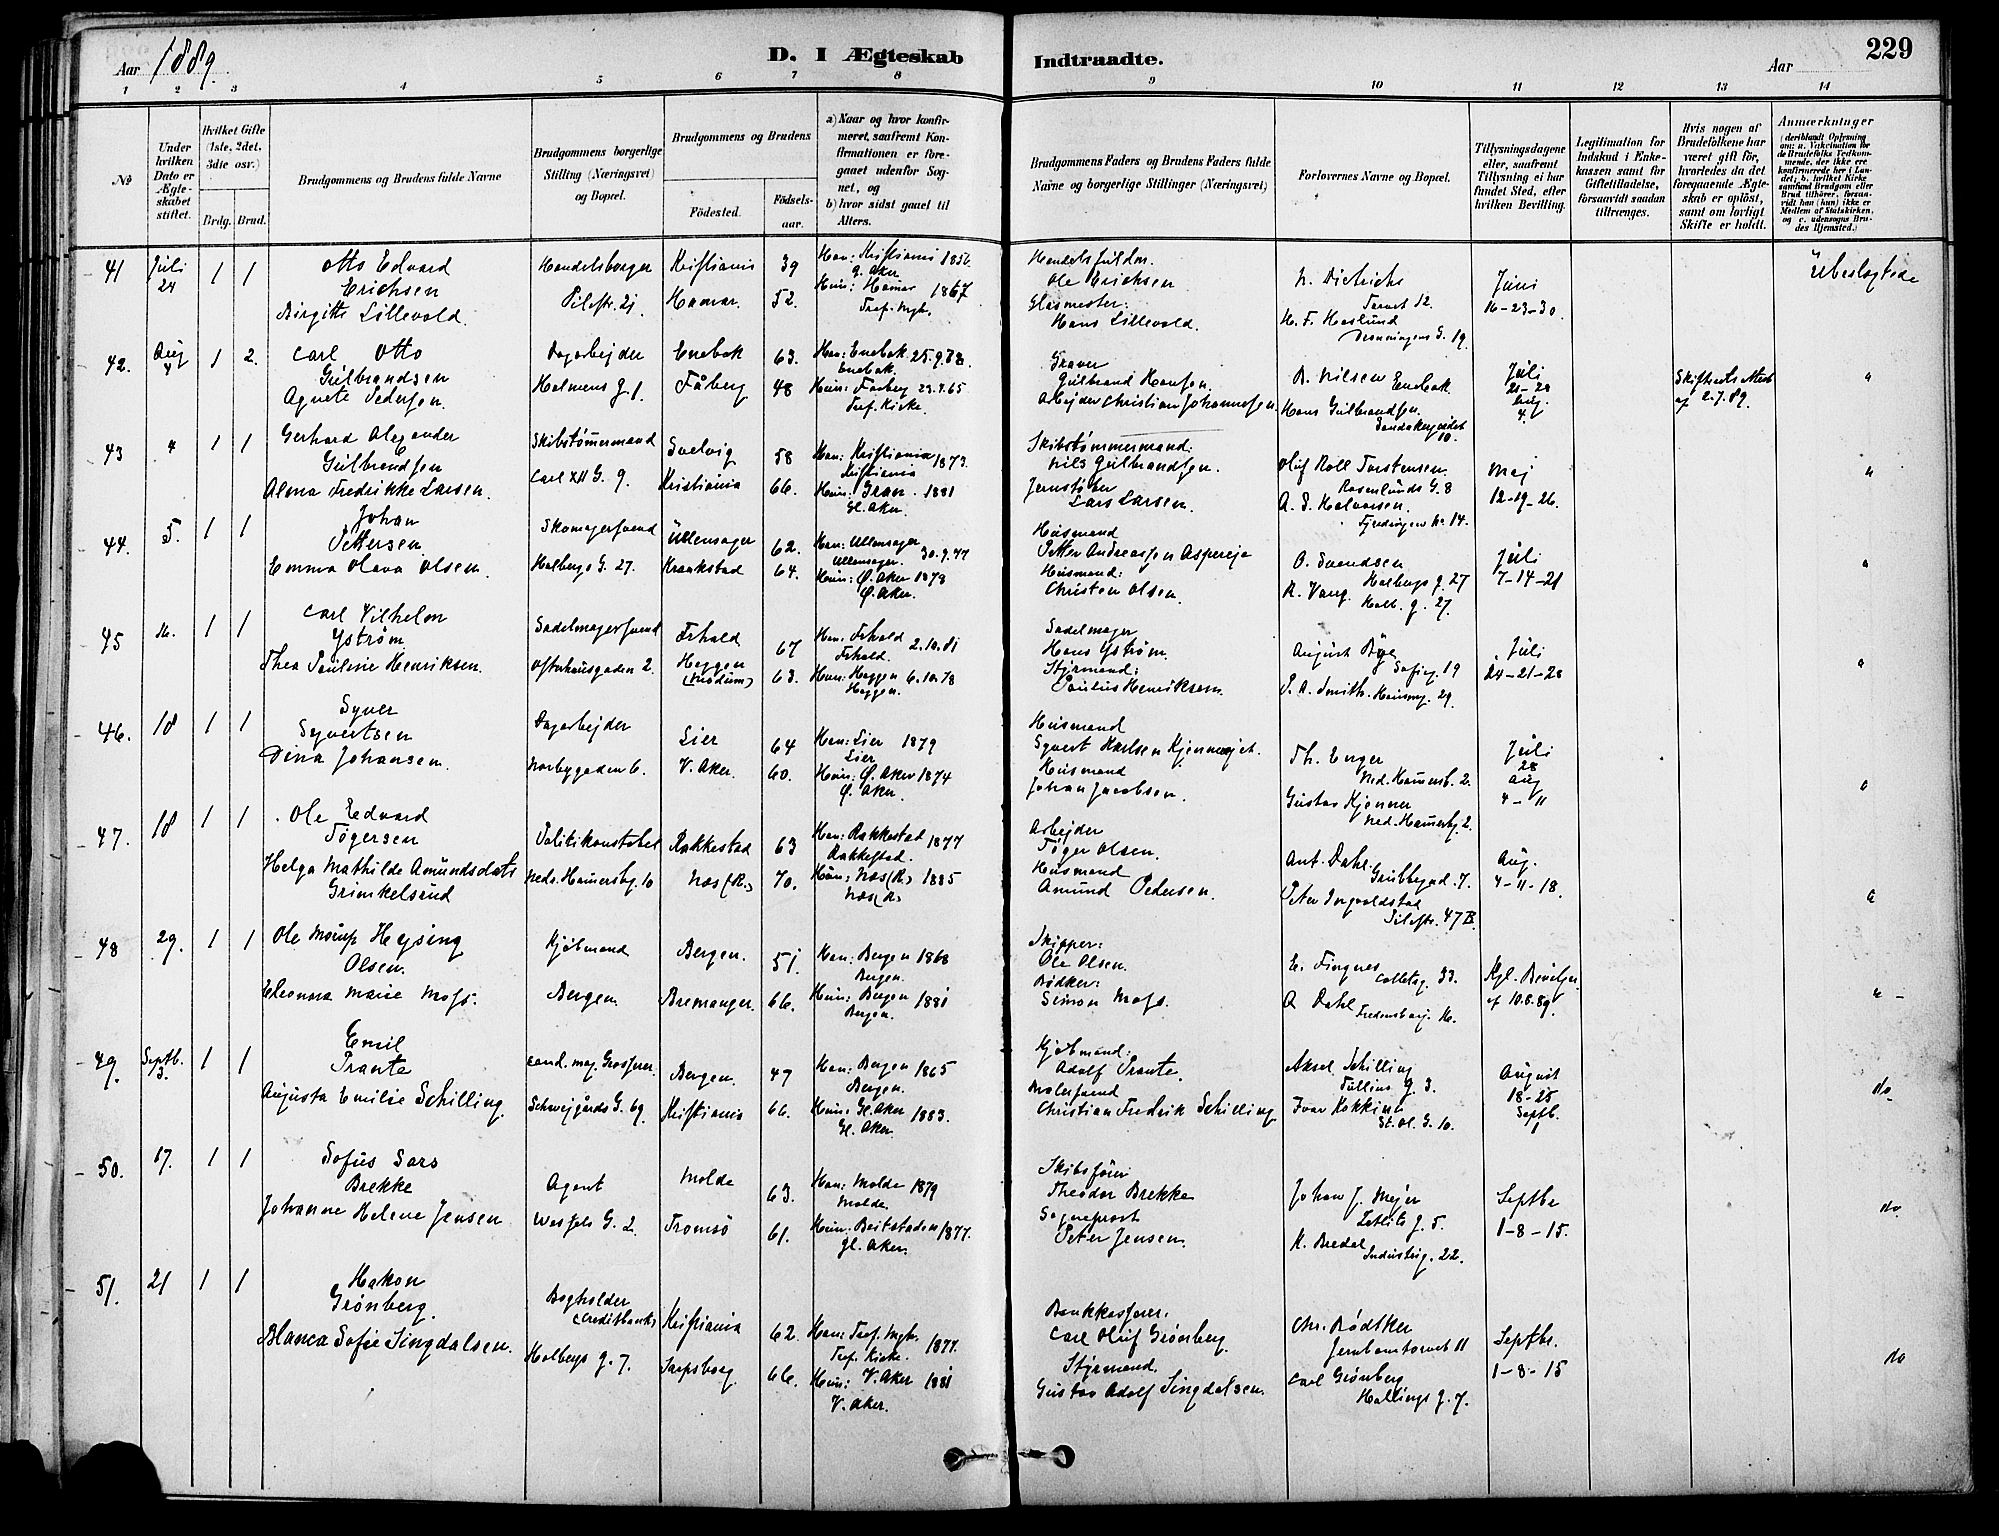 Aar 1889.
D. I Ægteskab
Indtraadte.
Aar
229
1
2
3
4
5
6
7
8
9
10
11
12
13
14
№
Under hvilken Dato er Ægteskabet stiftet.
Hvilket Gifte (1ste, 2det, 3die osr.)
Brdg.
Brud.
Brudgommens og Brudens fulde Navne
Brudgommens borgerlige Stilling (Næringsvei) og Bopæl.
Brudgommens og Brudens
Fødested.
Fødselsaar.
a) Naar og hvor konfirmeret, saafremt Konfirmationen er foregaaet udenfor Sognet, og
b) hvor sidst gaaet til Alters.
Brudgommens Faders og Brudens Faders fulde Navne og borgerlige Stillinger (Næringsvei)
Forlovernes Navne og Bopæl.
Tillysningsdagene eller, saafremt Tillysning ei har fundet Sted, efter hvilken Bevilling.
Legitimation for Indskud i Enkekassen samt for Giftetilladelse, forsaavidt saadan tiltrænges.
Hvis nogen af Brudefolkene har været gift før, hvorledes da det foregaaende Ægteskab er opløst, samt om lovligt Skifte er holdt.
Anmærkninger
41 Juli 24 1 1
Otto Edvard
Erichsen
Birgitte Lillevold.
Handelsborger
Pilestr. 21
Kristiania 39
Hamar 52.
Han: Kristiania 1856.
G. Aker
Hun: Hamar 1867
Tref. Mgh.
Handelsfuldm.
Ole Erichsen
Glasmester:
Hans Lillevold.
N. Dietrichs
Torvet 12.
H. F. Haslund
Dronningens G. 19.
Juni
16-23-30.
Ubeslægtede
42. Aug 4 1 2.
Carl Otto
Gulbrandsen
Agnete Pedersen.
Dagarbejder
Holmens g. 1
Enebak 63.
Fåberg 48
Han: Enebak 25.9.78.
Enebak.
Hun: Faaberg 29.9.65
Tref. Kirke.
Graver
Gulbrand Hansen.
Arbejder Christian Johannesen.
A. Nilsen Enebak
Hans Gulbrandsen
10.
Juli
21-28
Aug.
4.
Skifteretts Attest
af 2.7.89.
"
43 4 1 1
Gerhard Alexander
Gulbrandsen
Alma Fredrikke Larsen.
Skibstømmermand
Carl XII G. 9.
Svelvig 58
Kristiania 66.
Han: Kristiania 1873.
Kristiania
Hun: Gran. 1881
Gl. Aker.
Skibstømmermand.
Nils Gulbrandsen.
Jernstøber
Lars Larsen.
Oluf Roll Torstensen.
Rosenlunds G. 8
A. S. Halvorsen.
Fjerdingen No. 14.
Maj
12-19-26.
"
44. 5. 1 1
Johan
Pettersen
Emma Olava Olsen.
Skomagersvend
Holbergs G. 27.
Ullensager 62.
Kraakstad 64.
Han: Ullensager 30.9.77
Ullensager.
Hun: Ø. Aker 1878
Ø. Aker.
Husmand
Petter Andreassen Aspereje
Husmand:
Christen Olsen.
O. Svendsen
Holbergs g. 27
A. Vang.
Holb. g. 27.
Juli
7-14-21
"
45 16. 1 1
Carl Vilhelm
Yström
Thea Pauline Henriksen.
Sadelmagersvend
Osterhausgaden 2.
Frhald. 67
Heggen (Modum) 63.
Han: Frhald 2.10.81
Frhald.
Hun: Heggen 6.10.78
Heggen.
Sadelmager
Hans Yström.
Styrmand:
Paulus Henriksen.
August Bye
Sofieg. 19
P. A. Smith. Hausmg. 29.
Juli
24-21-28
"
46. 18 1 1
Syver
Syvertsen
Dina Johansen.
Dagarbejder
Norbygaden 6.
Lier 64
V. Aker. 60.
Han: Lier 1879
Lier
Hun: Ø. Aker 1874
Ø. Aker.
Husmand
Syvert Karlsen Kjennerejet.
Husmand
Johan Jacobsen.
Th. Enger
Ned. Hamersb. 2.
Gustav Kjønner
Ned. Hamersbg. 2.
Juli
28
Aug
4-11
"
47. 18 1 1
Ole Edvard
Tøgersen
Helga Mathilde Amundsdats
Grimkelsrud
Politikonstabel
Neds. Hamersbg. 10
Rakkestad 63
Næs (R.) 70.
Han: Rakkestad 1877
Rakkestad.
Hun: Næs (R.) 1885
Næs (R)
Arbejder
Tøger Olsen.
Husmand
Amund Pedersen.
Ant. Dahl
Grubbegad. 7.
Peter Ingvoldstad
Pilestr. 47 B.
Aug.
4-11-18.
"
48 29. 1 1
Ole Morup Heysing
Olsen.
Eleonora Marie Moss.
Kjøbmand
Bergen.
Bergen. 51.
Bremanger 66.
Han: Bergen 1868
Bergen.
Hun: Bergen 1881
Bergen.
Skipper:
Ole Olsen.
Bødker:
Simon Moss.
E. Tingnes
Colletsg. 33.
A Dahl
Fredensborg. 16.
Kgl. Bevilgn.
af 10.8.89.
"
49. Septb. 3. 1 1
Emil
Trante
Augusta Emilie Schilling
cand. mag. Grosserer.
Schwejgårds G. 69
Bergen. 47
Kristiania 66.
Han: Bergen 1865
Bergen.
Hun: Gl. Aker 1883.
Gl. Aker.
Kjøbmand:
Adolf Trante.
Malersvend
Christian Fredrik Schilling
Aksel Schilling
Tullins G. 3.
Ivar Kokkin
St. Ol. G. 10.
August
18-25
Septb.
1
do
50. 17. 1 1
Sofus Sars
Brekke
Johanne Helene Jensen
Agent
Wessels G. 2.
Molde 63.
Tromsö 61.
Han: Molde 1879
Molde.
Hun: Beitstaden 1877.
Gl. Aker.
Skibsfører
Theodor Brekke
Sogneprest
Peter Jensen.
Johan J. Mejer
K. Bredal
Industrig. 22.
Septbr
1-8-15.
do.
51. 21 1 1
Hakon
Grønberg.
Blanca Sofie Singdalsen.
Bogholder
(Creditbank)
Holbergs g. 7.
Kristiania 62.
Sarpsborg 66.
Han: Tref. Mgh. 1877.
Tref. Kirke.
Hun: V. Aker 1881
V. Aker.
Bankkasserer.
Carl Oluf Grønberg.
Styrmand.
Gustav Adolf Singdalsen.
Chr. Bødtker
Jernbantorvet 11
Carl Grønberg
Hollings g. 7.
Septbr.
1-8-15
do